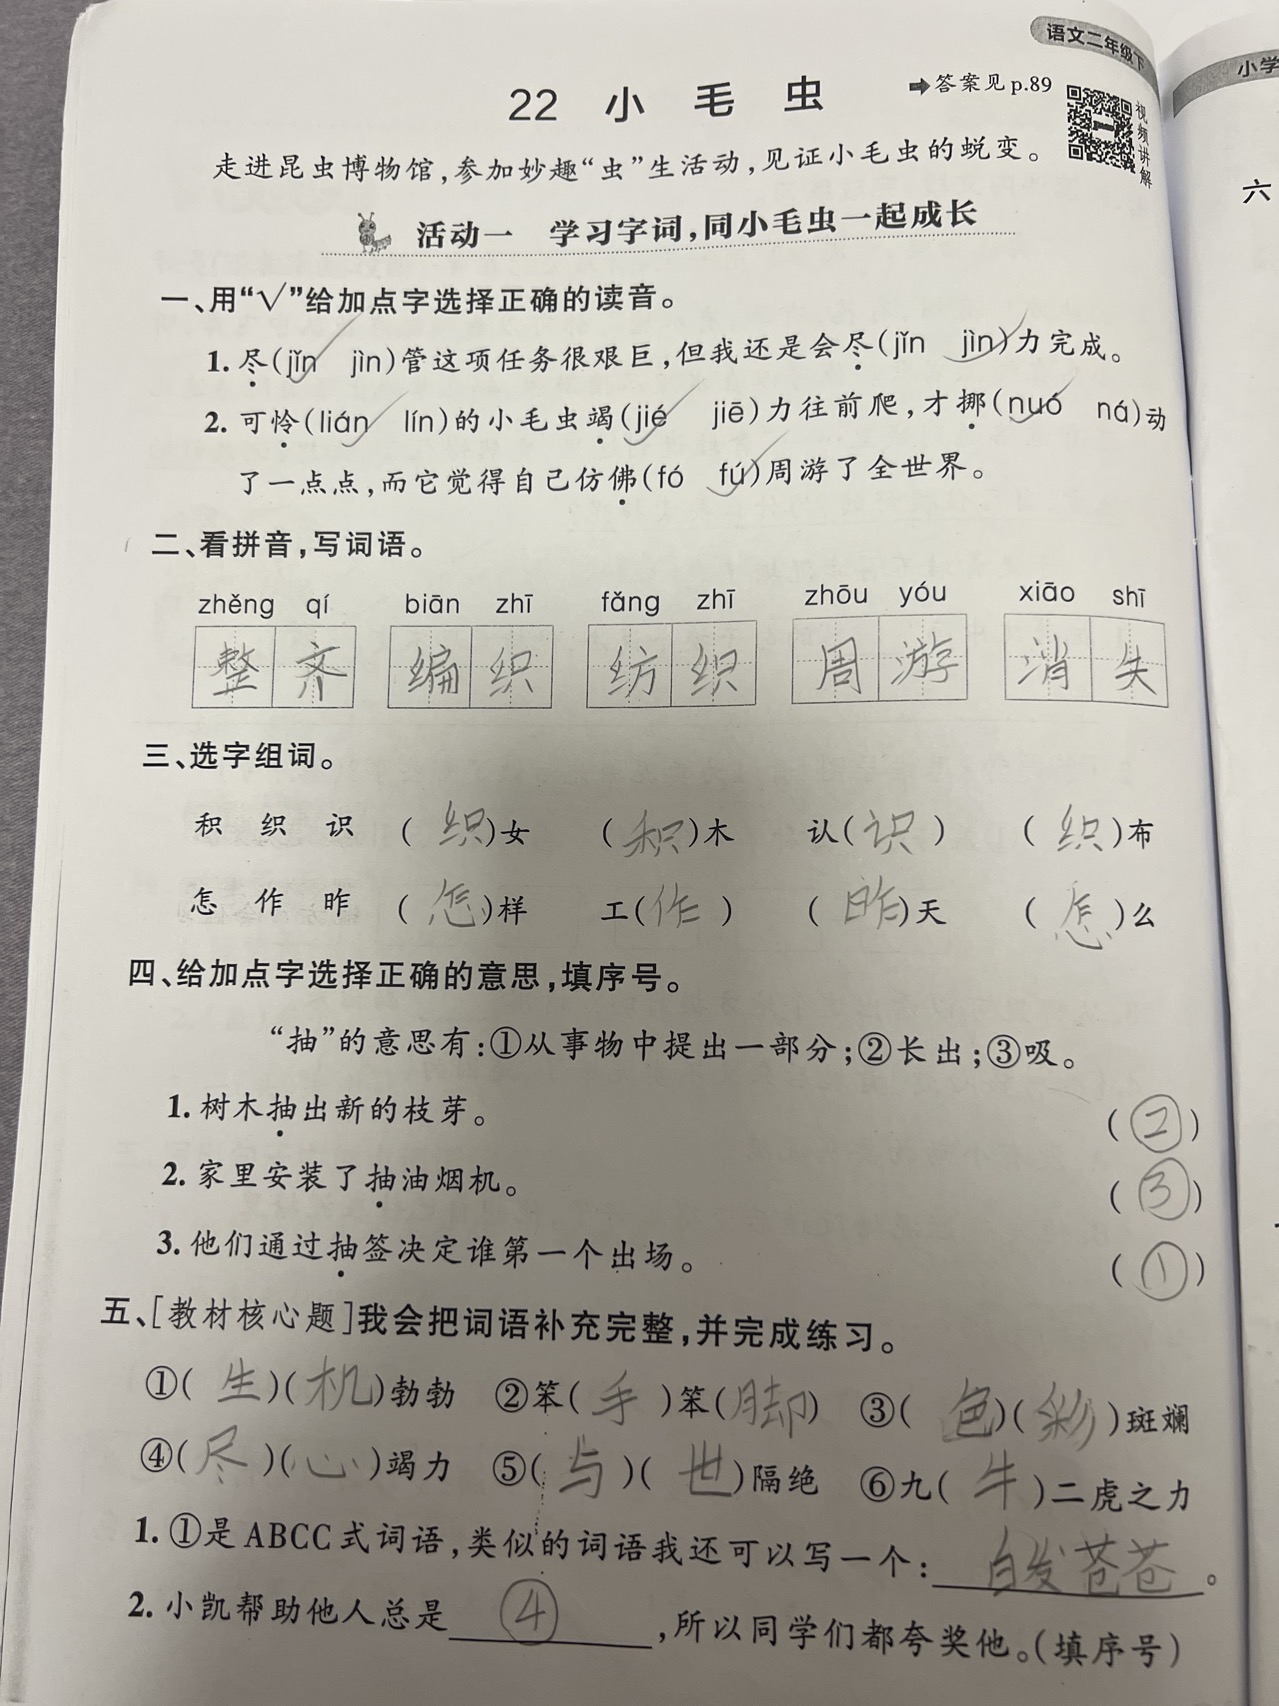 语文二年级下
小学
22 小毛虫
➡答案见p.89
视频讲解
六
走进昆虫博物馆,参加妙趣“虫”生活动,见证小毛虫的蜕变。
活动一 学习字词,同小毛虫一起成长
一、用“√”给加点字选择正确的读音。
1. 尽(jǐn√ jìn)管这项任务很艰巨,但我还是会尽(jǐn jìn√)力完成。
2. 可怜(lián√ lín)的小毛虫竭(jié√ jiē)力往前爬,才挪(nuó√ ná)动
了一点点,而它觉得自己仿佛(fó fú√)周游了全世界。
二、看拼音,写词语。
zhěng qí biān zhī fǎng zhī zhōu yóu xiāo shī
整齐 编织 纺织 周游 消失
三、选字组词。
积 织 识 (织)女 (积)木 认(识) (织)布
怎 作 昨 (怎)样 工(作) (昨)天 (怎)么
四、给加点字选择正确的意思,填序号。
“抽”的意思有:①从事物中提出一部分;②长出;③吸。
1. 树木抽出新的枝芽。 (②)
2. 家里安装了抽油烟机。 (③)
3. 他们通过抽签决定谁第一个出场。 (①)
五、[教材核心题]我会把词语补充完整,并完成练习。
①(生)(机)勃勃 ②笨(手)笨(脚) ③(色)(彩)斑斓
④(尽)(心)竭力 ⑤(与)(世)隔绝 ⑥九(牛)二虎之力
1. ①是ABCC式词语,类似的词语我还可以写一个:白发苍苍。
2. 小凯帮助他人总是④,所以同学们都夸奖他。(填序号)